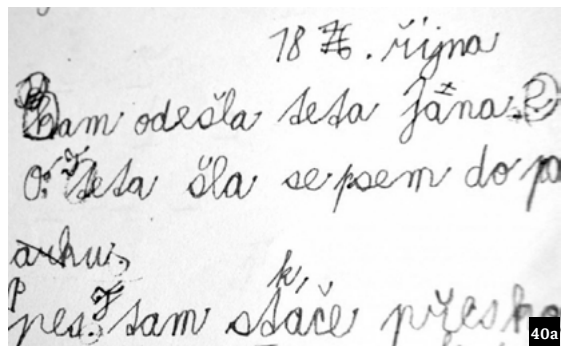 18 . října
Kam odešla teta Jána.?
O: Teta šla se psem do pa
arku.
k,
pes. Tam stáče přesko
40a